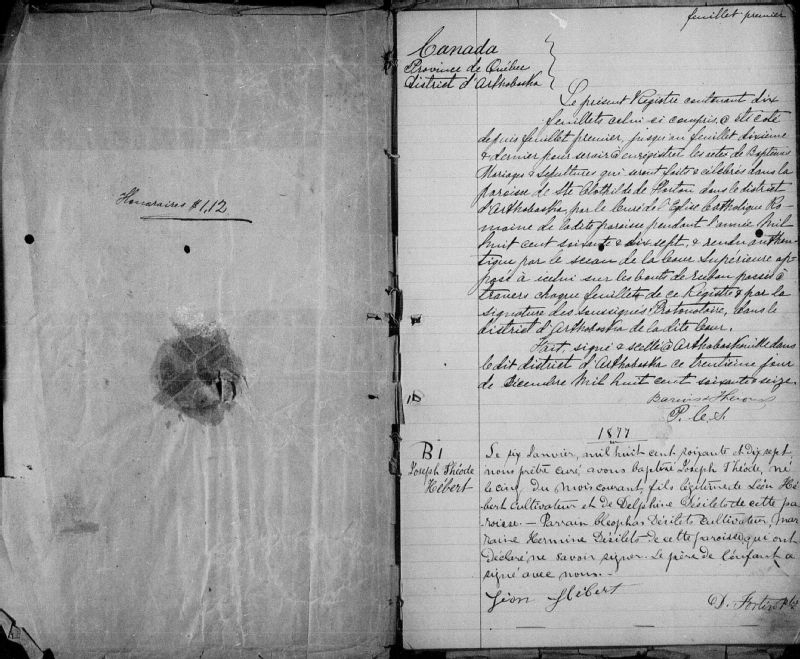 Honoraires $1,12
feuillet premier
Canada
Province de Québec
District d'Arthabaska
Le présent Registre contenant dix
feuillets celui-ci compris, a été coté
depuis feuillet premier, jusqu'au feuillet dixième
& dernier pour servir à enrégistrer les actes de Baptêmes
Mariages & Sépultures qui seront faits & célébrés dans la
paroisse de Ste Clothilde de Horton dans le district
d'Arthabaska, par le Curé de l'Eglise Catholique Ro-
maine de la dite paroisse pendant l'année Mil
huit cent soixante & dix sept, & rendu authen-
tique par le sceau de la Cour Supérieure ap-
posé à icelui sur les bouts de ruban passés à
travers chaque feuillet de ce Registre & par la
signature des soussignés Protonotaire, dans le
district d'Arthabaska de la dite Cour.
Fait, signé & scellé à Arthabaskaville dans
le dit district d'Arthabaska ce trentième jour
de Décembre Mil huit cent soixante & seize.
P. C. S.
1877
B1
Joseph Théode
Hébert
Le six Janvier, mil huit cent soixante et dix sept
nous prêtre curé avons baptisé Joseph Théode, né
le cinq du mois courant, fils légitime de Léon Hé
bert cultivateur et de Delphine Désilets de cette pa
roisse. — Parrain Cleophas Désilets cultivateur, mar
raine Hermine Désilets de cette paroisse, qui ont
déclaré ne savoir signer. Le père de l'enfant a
signé avec nous. —
Léon Hébert
D. Fortier Ptre